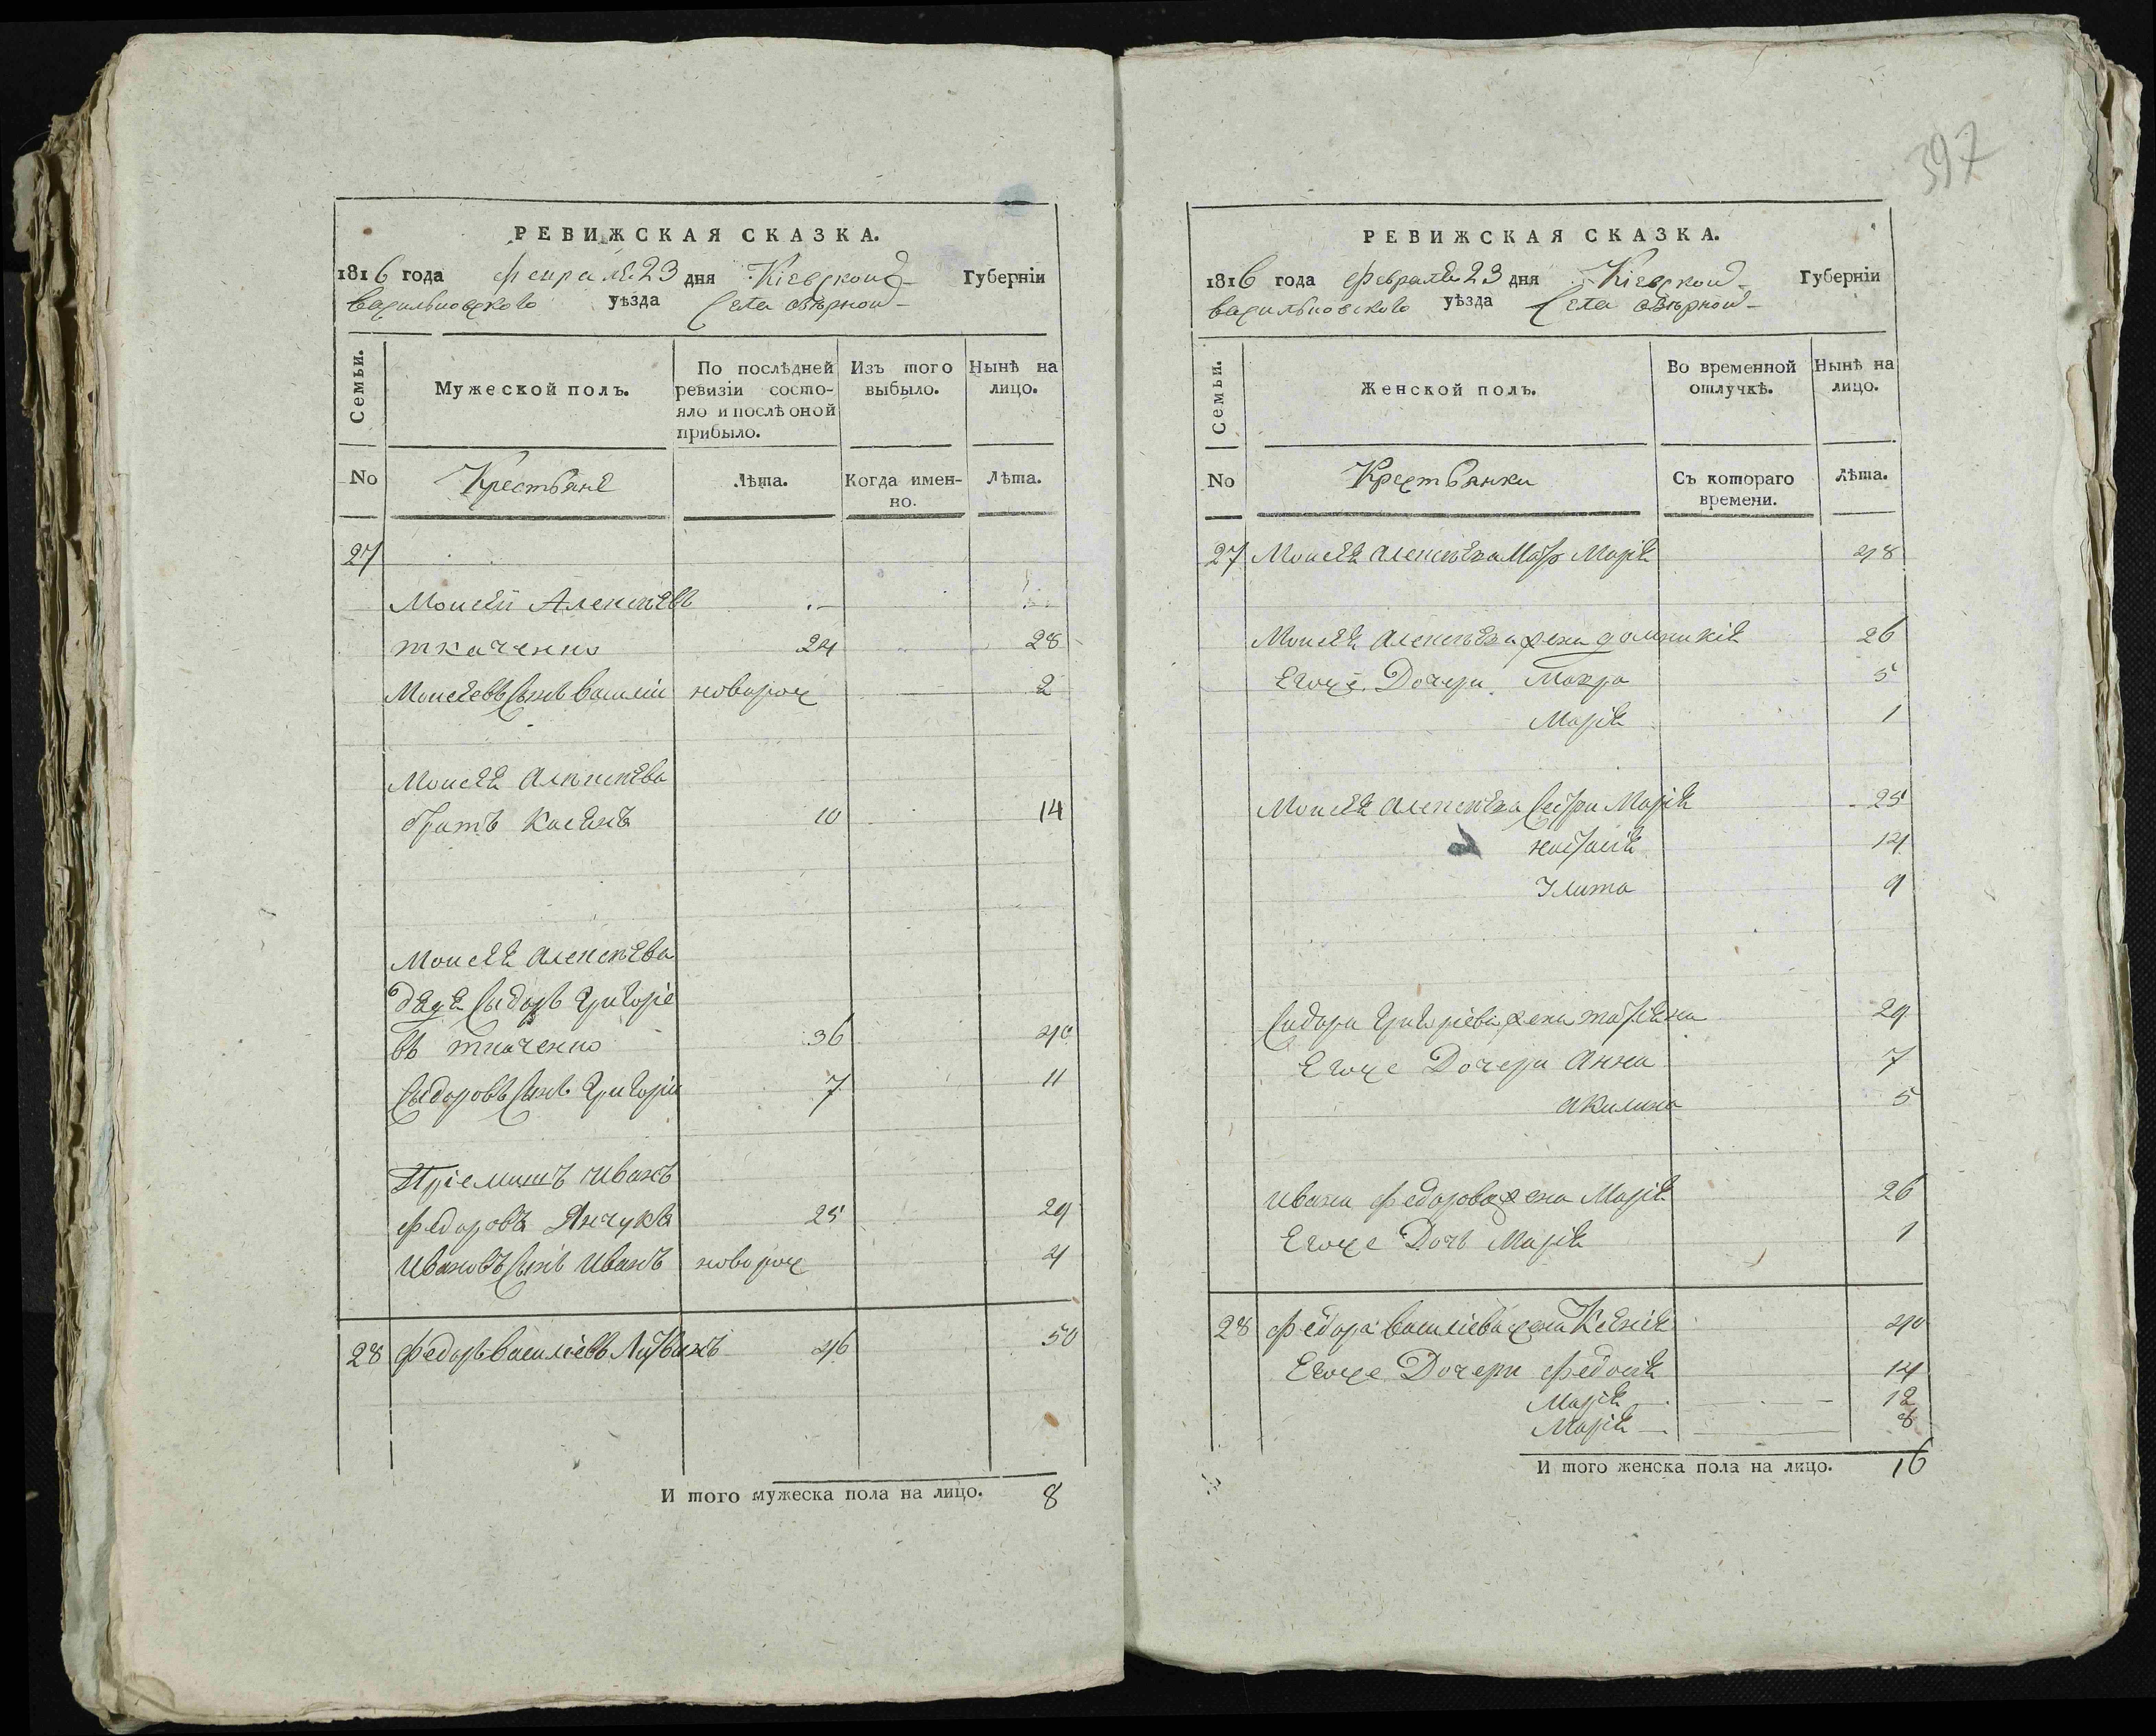 РЕВИЖСКАЯ СКАЗКА.
1816 года февраля 23 дня Кіевской Губерніи
васильковского уѣзда Села
Семьи.
Мужеской полъ.
По послѣдней ревизіи состо-
яло и послѣ оной
прибыло.
Изъ того
выбыло.
Нынѣ на
лицо.
No Крестьяне Лѣта. Когда имен-
но. Лѣта.
27
Моисей Алексѣевъ
ткаченко 24 28
Моисеевъ Сынъ василіи новорож 2
Моисея Алексѣева
братъ Касянъ 10 14
Моисея Алексѣева
дядя Сидоръ Григорие
въ ткаченко 36 40
Сидоровъ Сынъ Григорій 7 11
Пріемышъ иванъ
Федоровъ Янчукъ 25 29
Ивановъ Сынъ Иванъ новорож 4
28 Федоръ василіевъ Литвинъ 46 50
И того мужеска пола на лицо. 8
397
РЕВИЖСКАЯ СКАЗКА.
1816 года Февраля 23 дня Кіевской Губерніи
васильковского уѣзда Села
Семьи.
Женской полъ.
Во временной
отлучкѣ.
Нынѣ на
лицо.
No Крестьянки Съ котораго
времени. Лѣта.
27 Моисея Алексѣева Матр Марія 48
Моисея Алексѣева жена домникія 26
Егоже Дочери Мавра 5
Марія 1
Моисея Алексѣева Сестри Марія 25
настасія 14
Улита 9
Сидора Григорієва жена татіяна 29
Егоже Дочери Анна 7
Акилина 5
ивана Федорова жена Марія 26
Егоже Дочь Марія 1
28 Федора василіева жена Ксенія 40
Егоже Дочери Федосія 14
Марія 12
Марія 8
И того женска пола на лицо. 16